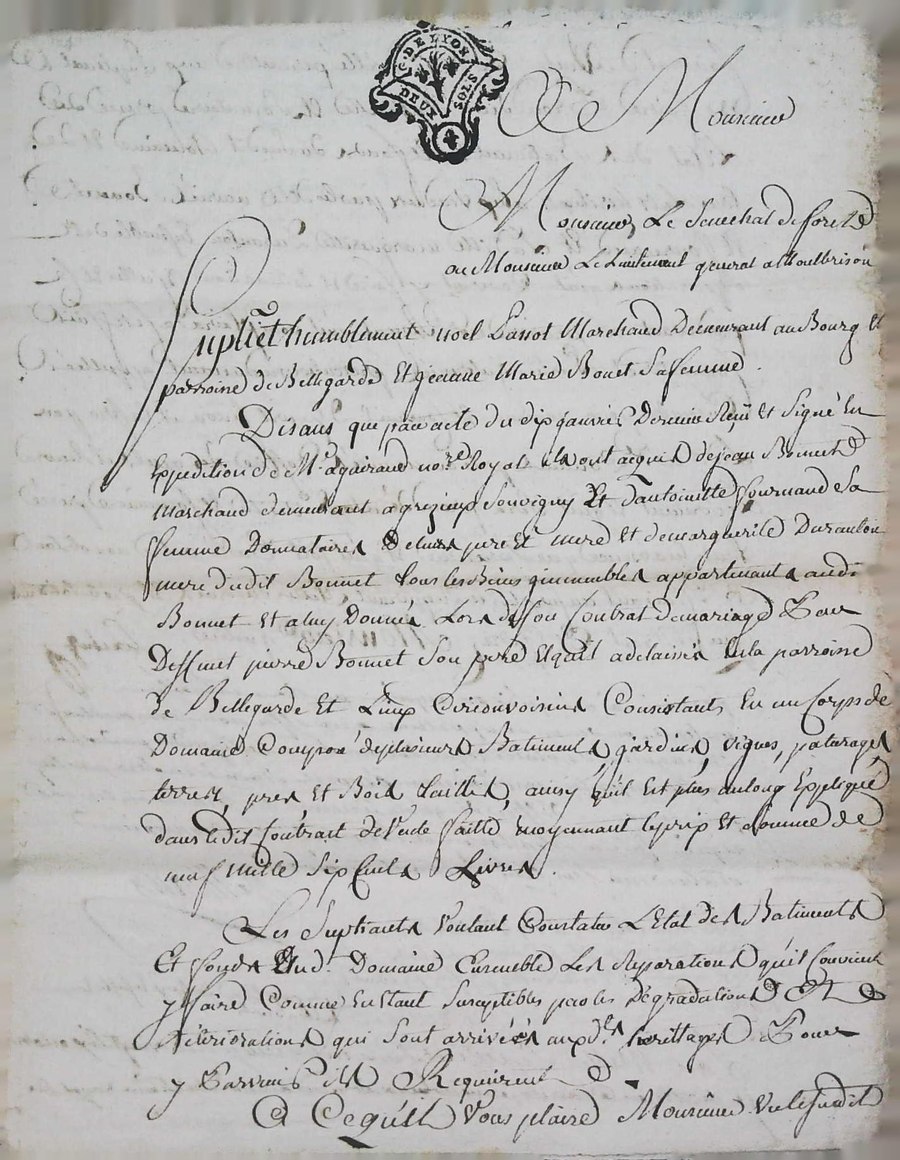 G. DE LYON
DEUX SOLS
A Monsieur
Monsieur Le Senechal de forez
ou Monsieur Le Lieutenant general a Montbrison
Supliēt humblement noel Marchand Demeurant au Bourg et
parroisse de Bellegarde Et jeanne Marie Bonet Sa femme.
Disans que par acte du dix janvier Dernier Reçu Et Signé En
Expedition de Me. aguiraud nore. Royal ils ont acquis de jean Bonnet
Marchand demeurant a grezieux Souvigny Et d'antoinette fournand Sa
femme Donnataires de leurs pere Et mere Et de marguerite
mere dudit Bonnet tous les Biens immeubles appartenants audt.
Bonnet Et a luy Donnés Lors de son Contrat de mariage Par
Deffunt pierre Bonnet Son pere Et qu'il a delaissés En la parroisse
de Bellegarde Et Lieux Circonvoisins Consistants En un Corps de
Domaine Composé de plusieurs Batiments, jardins, vignes, paturages
terres, pres Et Bois taillis, ainsy qu'il Est plus aulong Expliqué
dans ledit Contrait de Vente faitte moyennant le prix Et Somme de
neuf mille Six Cents Livres.
Les Supliants Voulant Constater L'Etat des Batiments
Et fonds dud. Domaine Ensemble Les Reparations qu'il Convient
y faire Comme Entant Susceptibles par les Dégradations Et
déteriorations qui Sont arrivéés auxds. herittages Pour
y Parvenir ils Requirent
A Ce qu'il Vous plaise Monsieur Vu le susdit